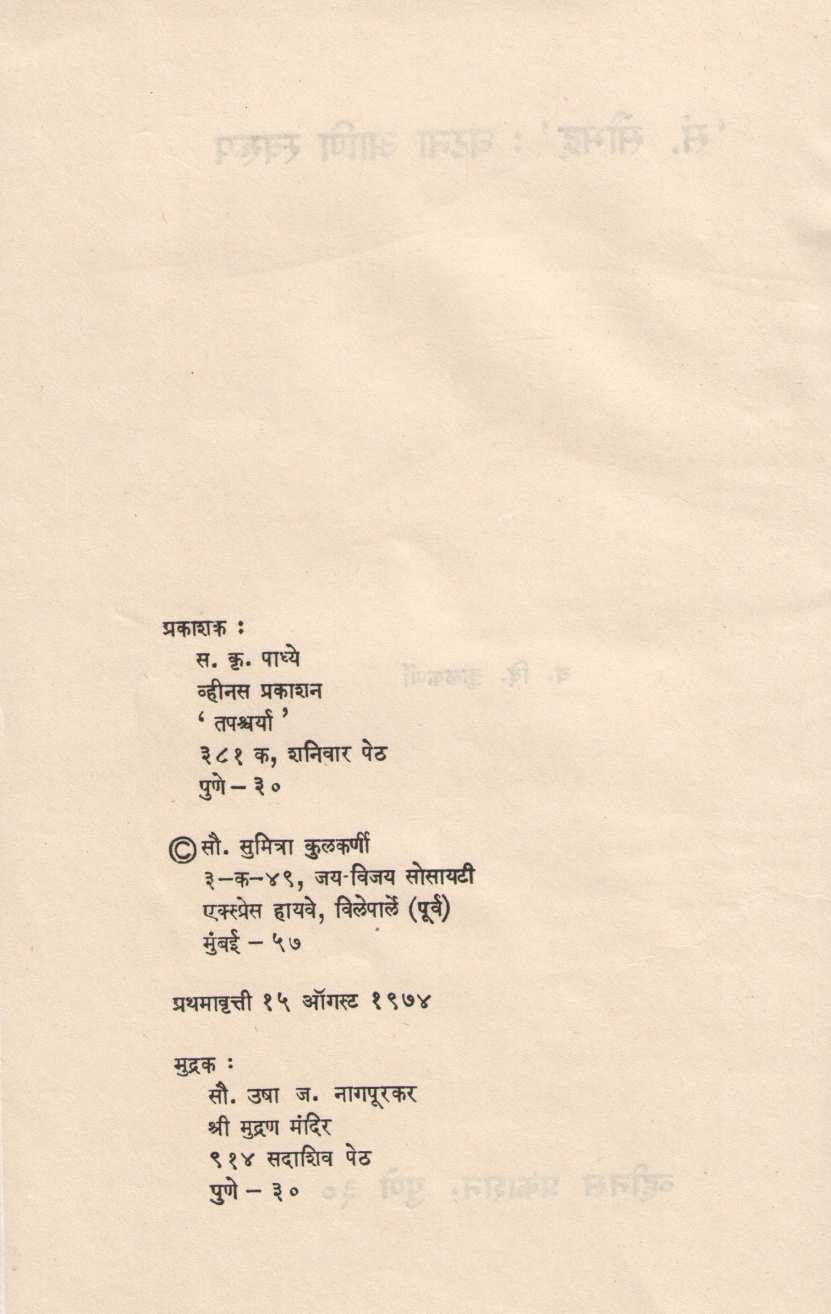 प्रकाशक :
स. कृ. पाध्ये
व्हीनस प्रकाशन
‘ तपश्चर्या ’
३८१ क, शनिवार पेठ
पुणे – ३०
© सौ. सुमित्रा कुलकर्णी
३–क–४९, जय-विजय सोसायटी
एक्स्प्रेस हायवे, विलेपार्ले (पूर्व)
मुंबई – ५७
प्रथमावृत्ती १५ ऑगस्ट १९७४
मुद्रक :
सौ. उषा ज. नागपूरकर
श्री मुद्रण मंदिर
९१४ सदाशिव पेठ
पुणे – ३०